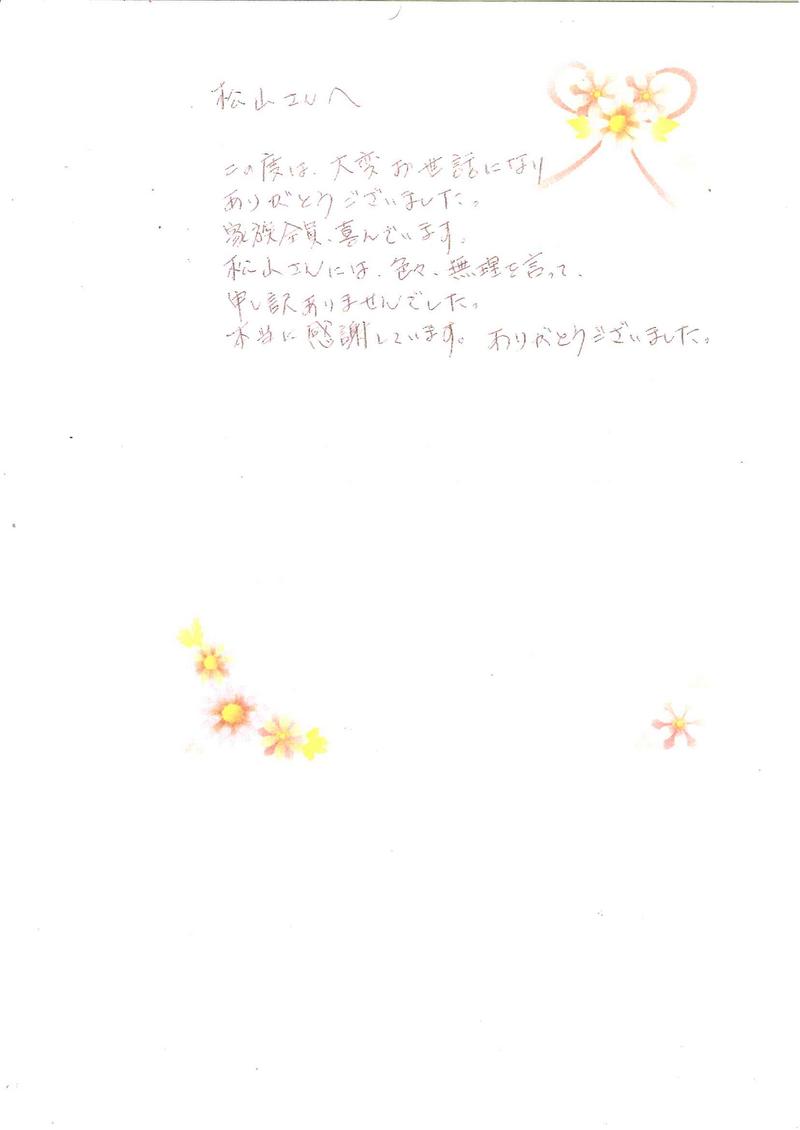 松山さんへ
この度は、大変お世話になり
ありがとうございました。
家族全員、喜んでいます。
松山さんには、色々、無理を言って、
申し訳ありませんでした。
本当に感謝しています。ありがとうございました。